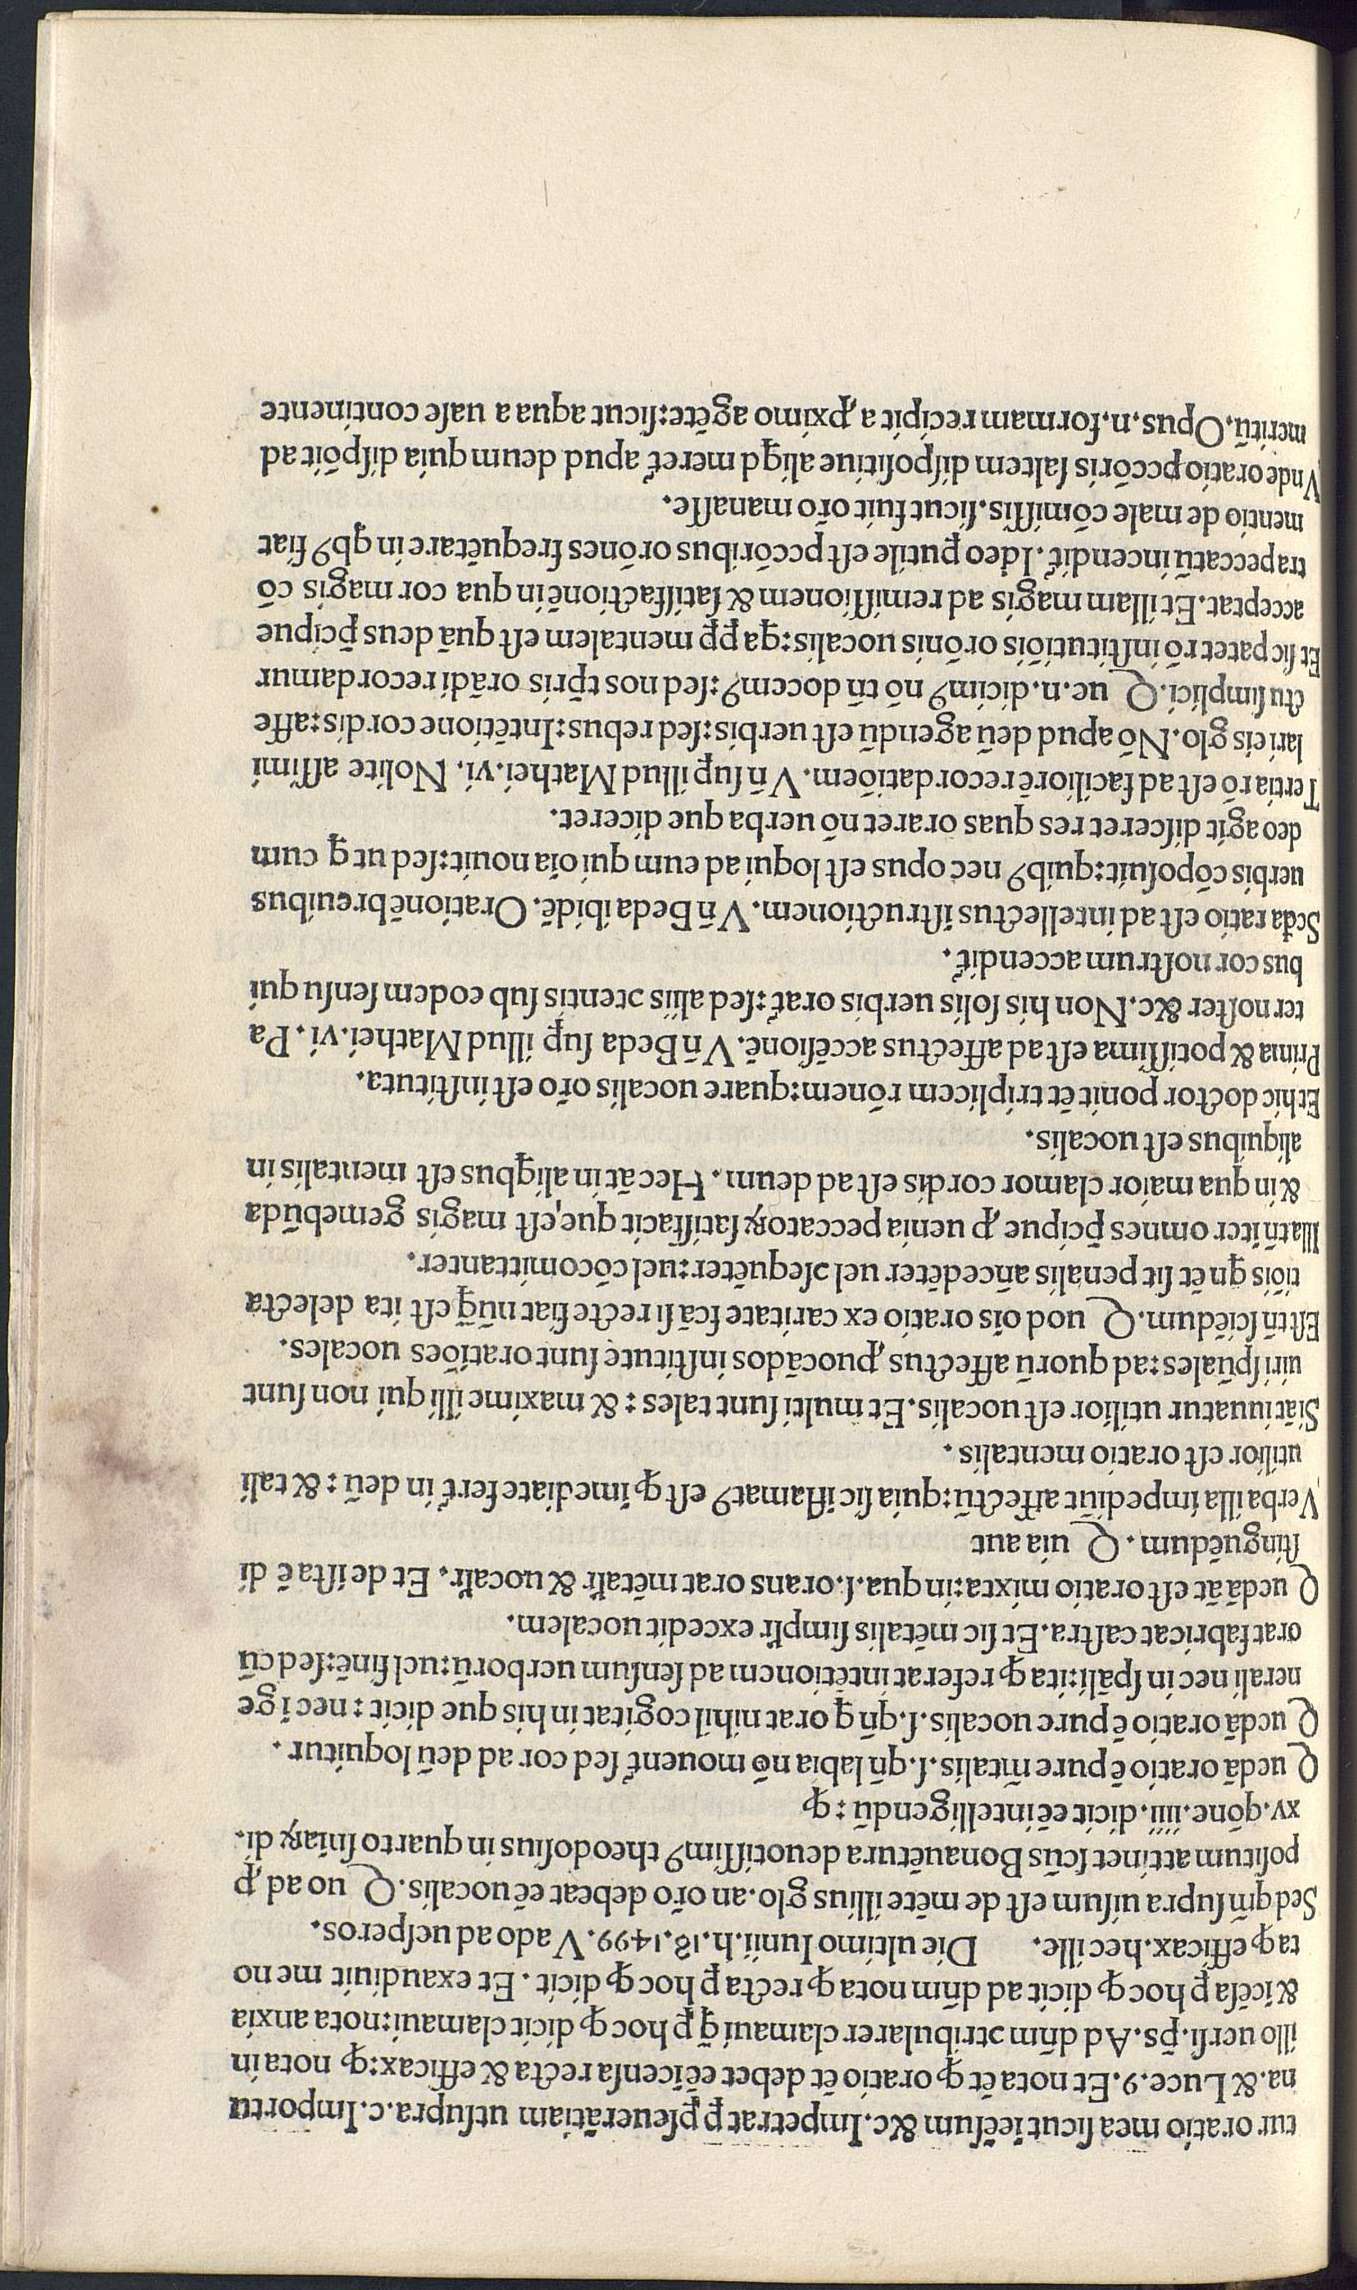 tur oratio mea sicut ĩcẽsum &c. Impetrat ꝑ ꝑseuerãtiam ut supra.c. Importu
na.& Luce.9. Et nota ẽt ꝙ oratio ẽt debet eẽ ĩcensa recta & efficax: ꝙ nota in
illo uersi. p̃s. Ad dñm ↄtribularer clamaui q̃ ꝑ hoc ꝙ dicit clamaui: nota anxia
& ĩcẽsa ꝑ hoc ꝙ dicit ad dñm nota ꝙ recta ꝑ hoc ꝙ dicit. Et exaudiuit me no
ta ꝙ efficax. hec ille. Die ultimo Iunii. h. 18. 1499. Vado ad uesperos.
Sed qm̃ supra uisum est de mẽte illius glo. an orõ debeat eẽ uocalis. Quo ad ꝓ
positum attinet scũs Bonauẽtura deuotissimꝰ theodosius in quarto sniaꝝ di.
xv. qõne. iiii. dicit eẽ intelligendũ: ꝙ
Quedã oratio ẽ pure mẽtalis. s. qñ labia nõ mouent᷑ sed cor ad deũ loquitur.
Quedã oratio ẽ pure uocalis. s. qñ ꝗ orat nihil cogitat in his que dicit: nec ĩ ge
nerali nec in spãli: ita ꝙ referat intẽtionem ad sensum uerborũ: uel finẽ: sed cũ
orat fabricat castra. Et sic mẽtalis simplr̃ excedit uocalem.
Quedã ãt est oratio mixta: in qua. s. orans orat mẽtalr̃ & uocalr̃. Et de ista ẽ di
stinguẽdum. Quia aut
Verba illa impediũt affectũ: quia sic ĩflamatꝰ est ꝙ ĩmediate fert᷑ in deũ: & tali
utilior est oratio mentalis.
Si ãt iuuatur utilior est uocalis. Et multi sunt tales: & maxime illi qui non sunt
uiri spũales: ad quorũ affectus ꝓuocãdos institute sunt oratiões uocales.
Est tñ sciẽdum. Quod oĩs oratio ex caritate fcã si recte fiat nũq̃ est ita delecta
tiõis qñ ẽt sit penalis añcedẽter uel ↄsequẽter: uel cõcomittanter.
Illa tñ iter omnes p̃cipue ꝓ uenia peccatoꝝ satisfacit que, est magis gemebũda
& in qua maior clamor cordis est ad deum. Hec ãt in aliꝗbus est mentalis in
aliquibus est uocalis.
Et hic doctor ponit ẽt triplicem rõnem: quare uocalis orõ est instituta.
Prima & potissima est ad affectus accẽsionẽ. Vñ Beda sup illud Mathei. vi. Pa
ter noster &c. Non his solis uerbis orat᷑: sed aliis ↄtentis sub eodem sensu qui
bus cor nostrum accendit᷑.
Scđa ratio est ad intellectus ĩstructionem. Vñ Beda ibidẽ. Orationẽ breuibus
uerbis cõposuit: quibꝰ nec opus est loqui ad eum qui oĩa nouit: sed ut ꝗ cum
deo agit disceret res quas oraret nõ uerba que diceret.
Tertia rõ est ad faciliorẽ recordatiõem. Vñ sup illud Mathei. vi. Nolite assimi
lari eis glo. Nõ apud deũ agendũ est uerbis: sed rebus: Intẽtione cordis: affe
ctu simplici. Que. n. dicimꝰ nõ tñ docemꝰ: sed nos tp̃ris orãdi recordamur
Et sic patet rõ institutiõis orõnis uocalis: ꝗa ꝓp mentalem est quã deus p̃cipue
acceptat. Et illam magis ad remissionem & satisfactionẽ in qua cor magis cõ
tra peccatũ incendit᷑. Ideo ꝑutile est pccõribus orõnes frequẽtare in ꝗbꝰ fiat
mentio de male cõmissis. sicut fuit orõ manasse.
Vnde oratio pccõris saltem dispositiue aliꝗd meret᷑ apud deum quia dispõit ad
meritũ. Opus. n. formam recipit a ꝓximo agẽte: sicut aqua a uase continente